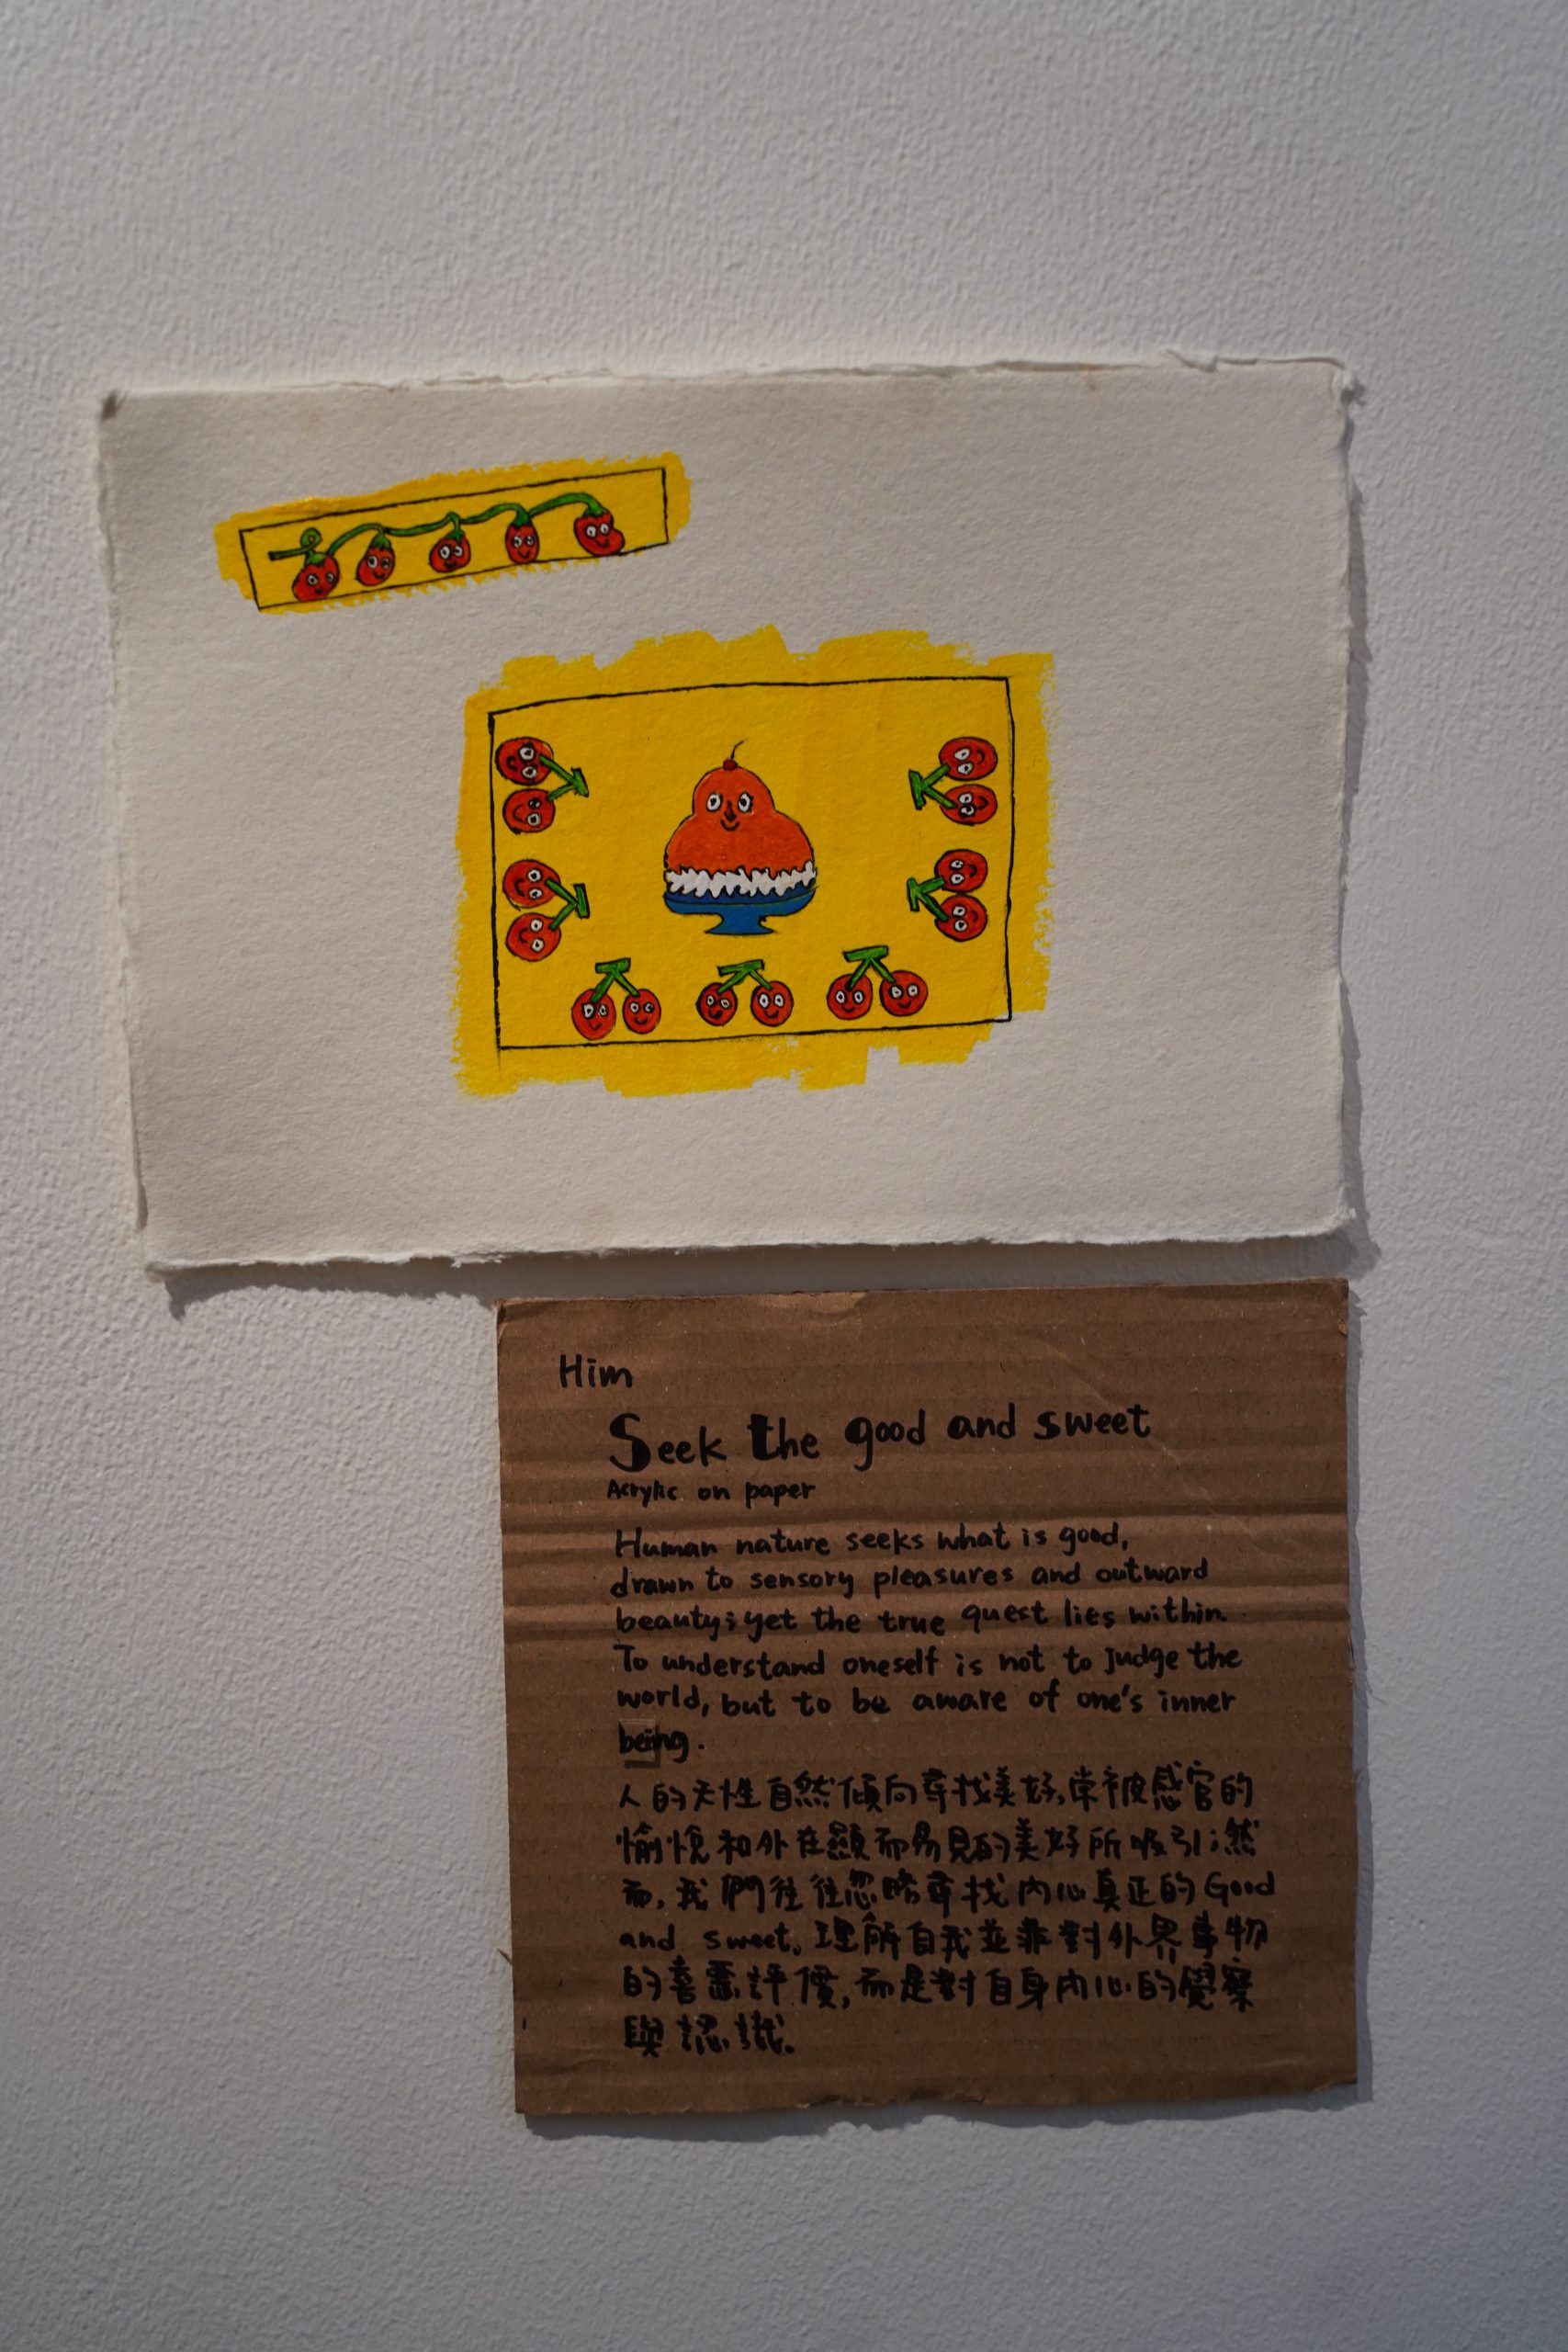 Him
Seek the good and sweet
Acrylic on paper
Human nature seeks what is good,
drawn to sensory pleasures and outward
beauty; yet the true quest lies within.
To understand oneself is not to judge the
world, but to be aware of one's inner
being.
人的天性自然傾向尋找美好,常被感官的
愉悅和外在顯而易見的美好所吸引;然
而,我們往往忽略尋找內心真正的Good
and sweet。理解自我並非對外界事物
的喜惡評價,而是對自身內心的覺察
與認識。